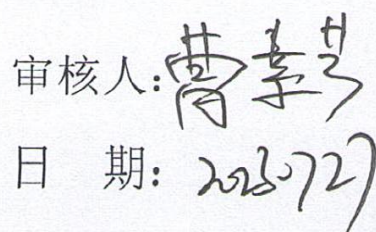 审核人：曹素芳
日　期：20230727